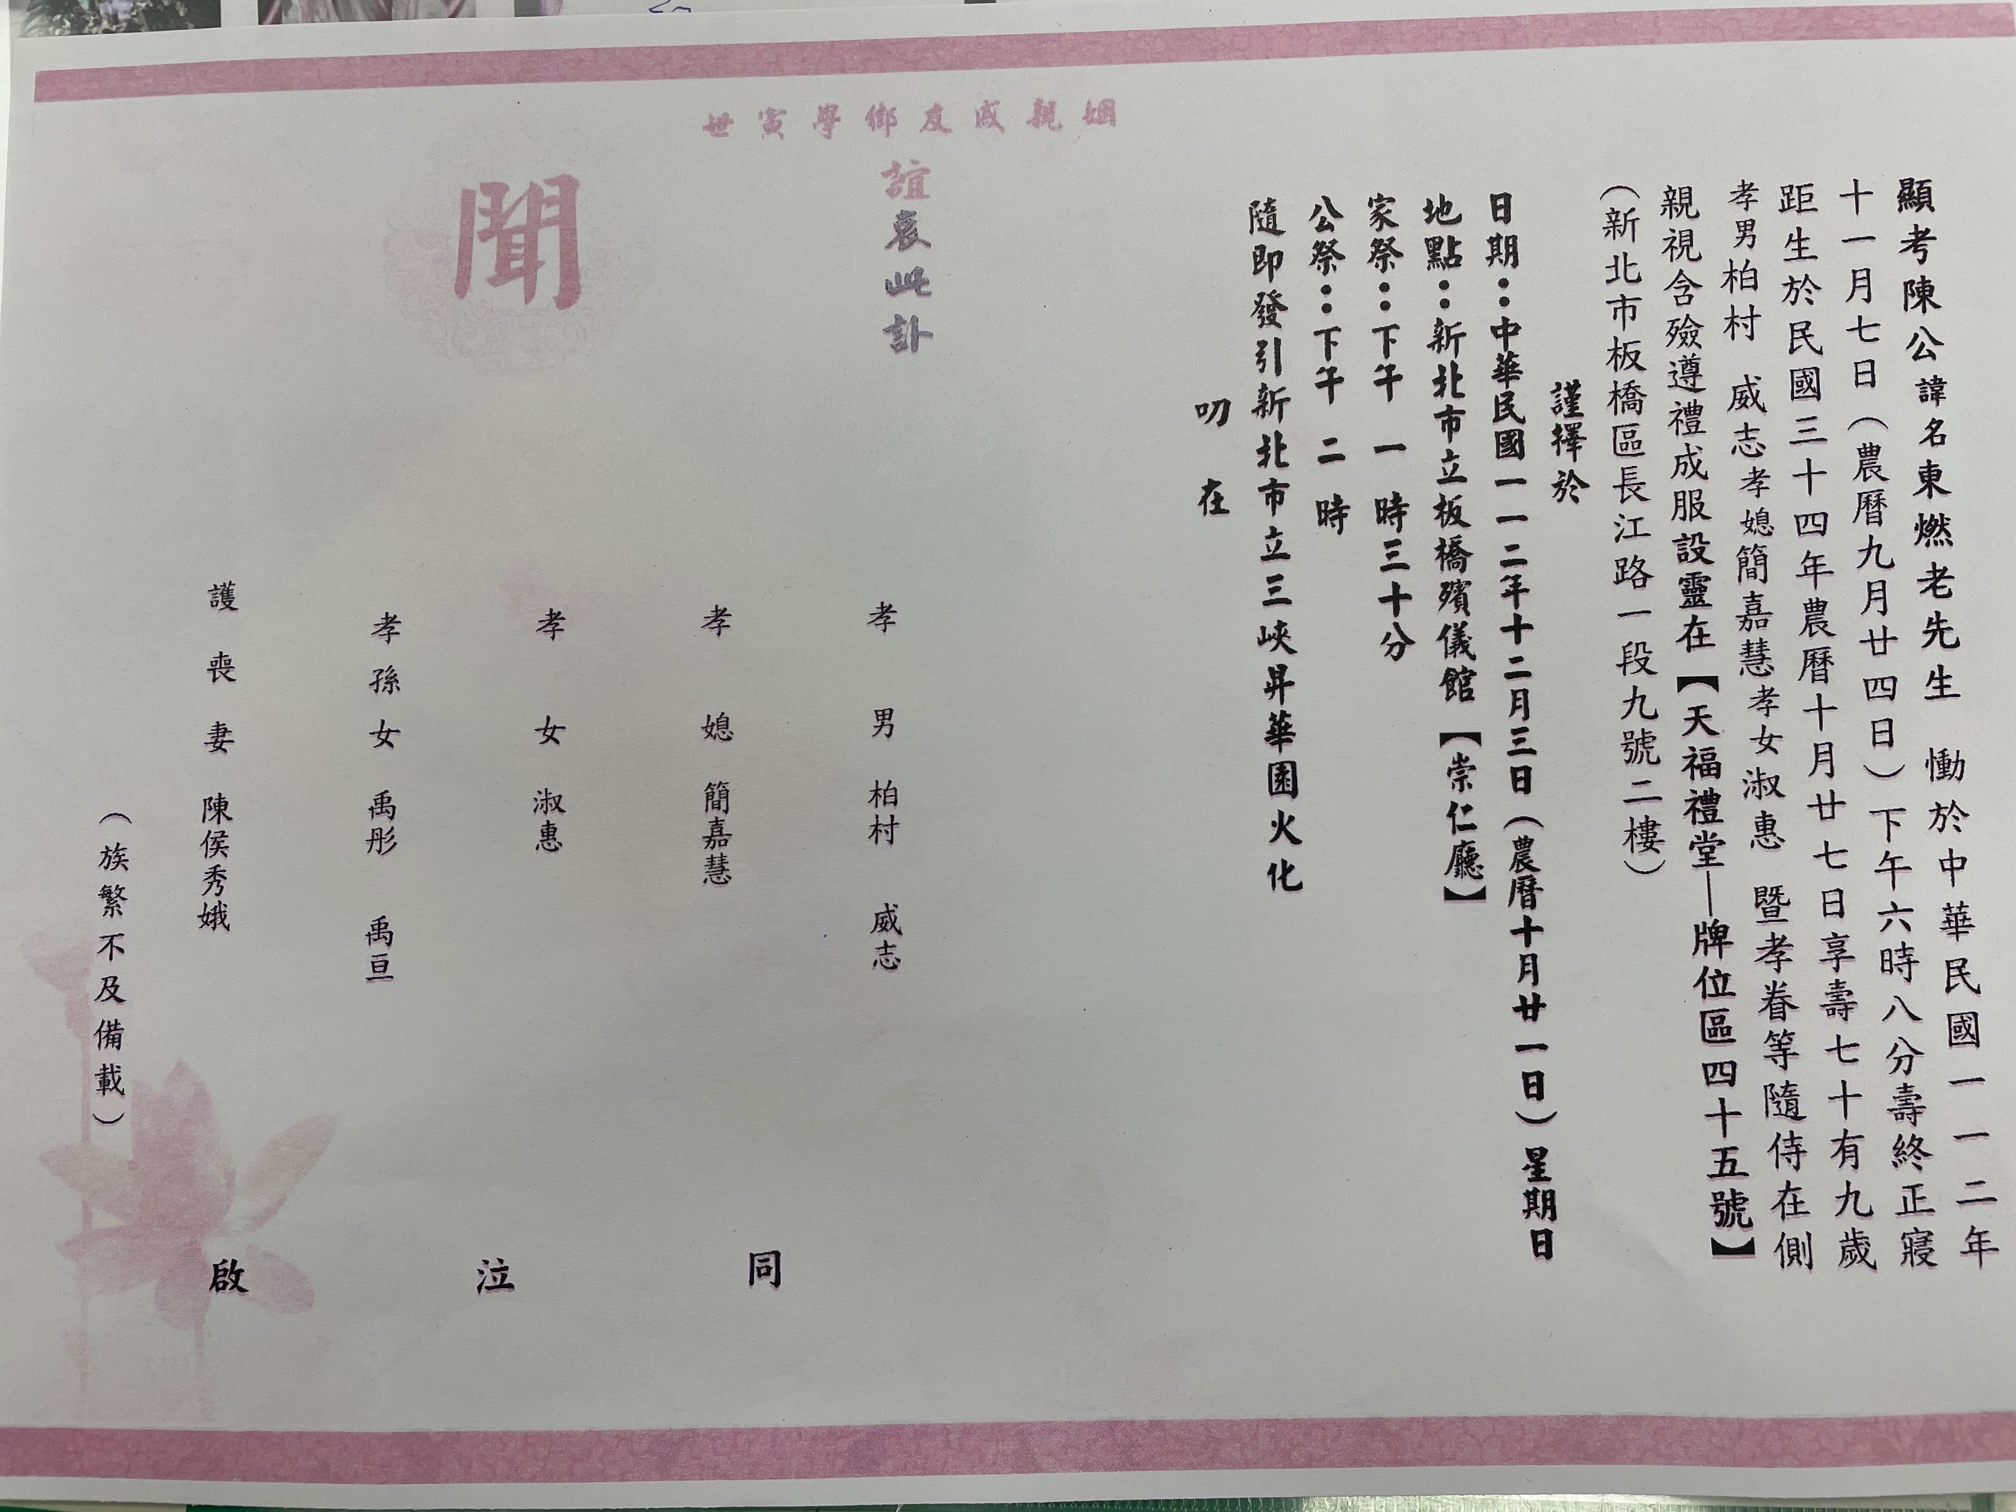 顯考陳公諱名東燃老先生　慟於中華民國一一二年
十一月七日（農曆九月廿四日）下午六時八分壽終正寢
距生於民國三十四年農曆十月廿七日享壽七十有九歲
孝男柏村　威志孝媳簡嘉慧孝女淑惠　暨孝眷等隨侍在側
親視含殮遵禮成服設靈在【天福禮堂—牌位區四十五號】
（新北市板橋區長江路一段九號二樓）
謹擇於
日期：中華民國一一二年十二月三日（農曆十月廿一日）星期日
地點：新北市立板橋殯儀館【崇仁廳】
家祭：下午一時三十分
公祭：下午二時
隨即發引新北市立三峽昇華園火化
叨在
姻親戚友鄉學寅世
誼哀此訃
聞
孝男柏村　威志
孝媳簡嘉慧
孝女淑惠
孝孫女禹彤　禹亘
護喪妻陳侯秀娥
（族繁不及備載）
同泣啟